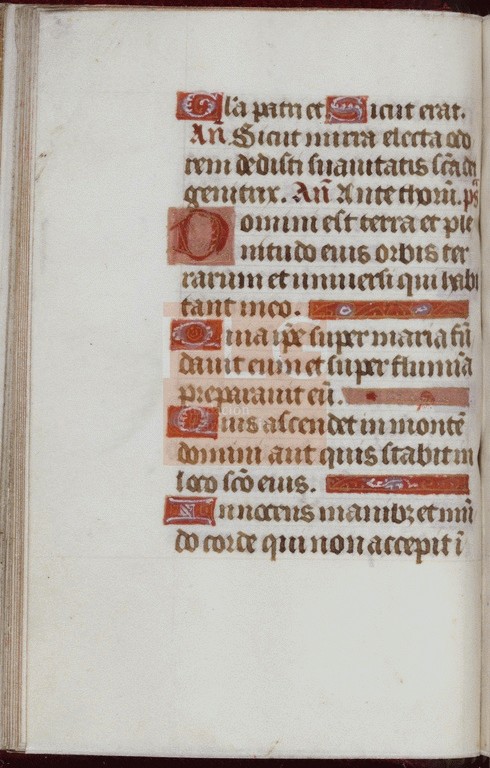 Gl'a patri et Sicut erat.
An̄. Sicut mirra electa odo
rem dedisti suauitatis sc̄a dei
genitrix. An̄ Ante thorū. ps
Domini est terra et ple
nitudo eius orbis ter
rarum et uniuersi qui habi
tant in eo.
Quia ip̄e super maria fū
dauit eum et super flumīa
preparauit eū.
Quis ascendet in montē
domini aut quis stabit in
loco sc̄o eius.
Innocens manibꝫ et mū
do corde qui non accepit ī